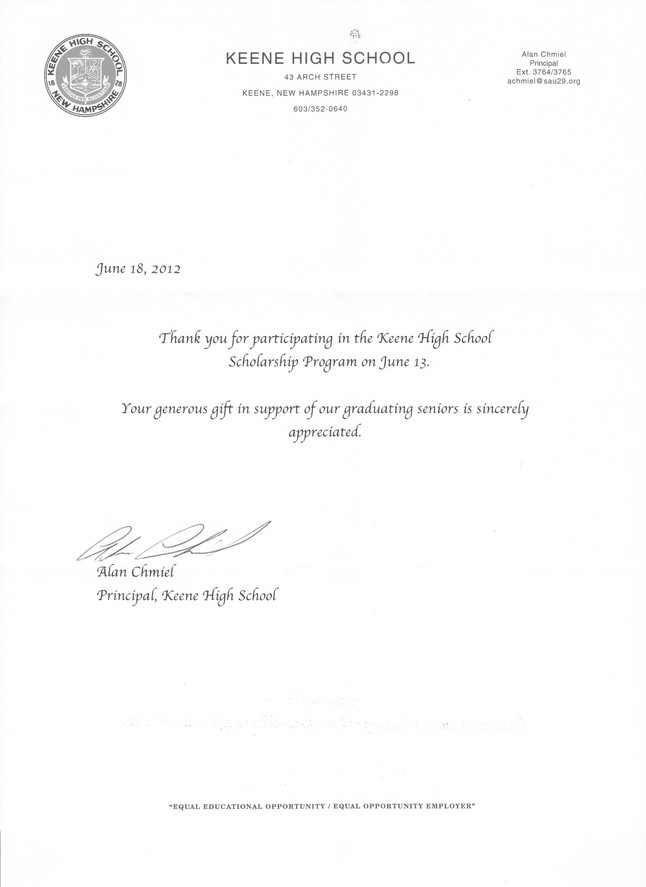 KEENE HIGH SCHOOL
18 28
NEW HAMPSHIRE
KEENE HIGH SCHOOL
43 ARCH STREET
KEENE, NEW HAMPSHIRE 03431-2298
603/352-0640
Alan Chmiel
Principal
Ext. 3764/3765
achmiel@sau29.org
June 18, 2012
Thank you for participating in the Keene High School
Scholarship Program on June 13.
Your generous gift in support of our graduating seniors is sincerely
appreciated.
Alan Chmiel
Principal, Keene High School
"EQUAL EDUCATIONAL OPPORTUNITY / EQUAL OPPORTUNITY EMPLOYER"